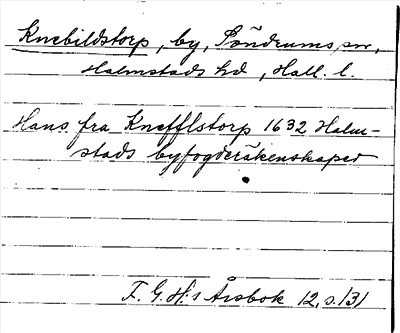 Knebildstorp, by, Söndrums sn,
Halmstads hd, Hall. l.
Hans fra Knefflstorp 1632 Halm-
stads byfogderäkenskaper
F.G.H:s Årsbok 12, s. 131